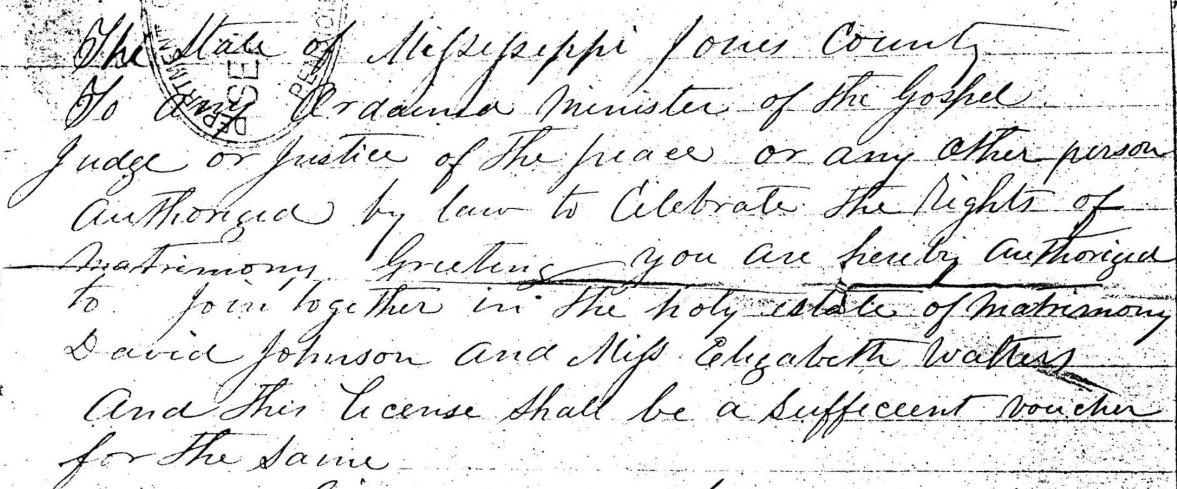 The State of Mississippi Jones County
To any Ordained Minister of the Gospel
Judge or Justice of the peace or any other person
Authorized by law to Celebrate the Rights of
Matrimony Greeting you are hereby Authorized
to Join together in the holy estate of Matrimony
David Johnson And Miss Elizabeth Walters
And this License Shall be a Sufficeent Voucher
for the Same